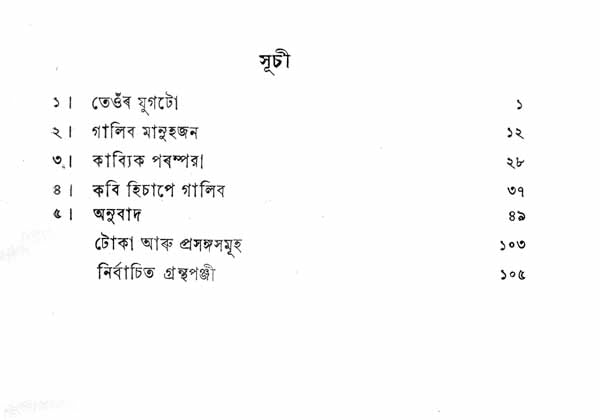 সূচী
১। তেওঁৰ যুগটো ১
২। গালিব মানুহজন ১২
৩। কাব্যিক পৰম্পৰা ২৮
৪। কবি হিচাপে গালিব ৩৭
৫। অনুবাদ ৪৯
টোকা আৰু প্ৰসঙ্গসমূহ ১০৩
নিৰ্বাচিত গ্ৰন্থপঞ্জী ১০৫